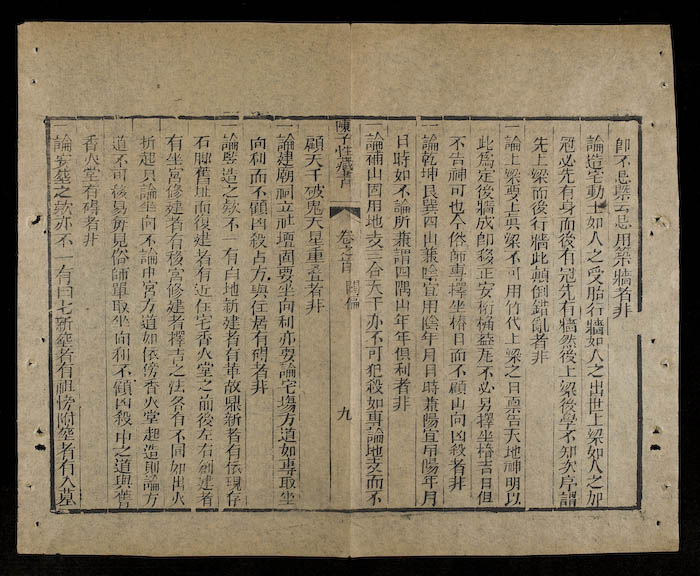 即不忌槩云忌用築牆者非
一論造宅動土如人之受胎行牆如人之出世上梁如人之加
冠必先有身而後有冠先有牆然後上梁後學不知次序謂
先上梁而後行牆此顛倒錯亂者非
一論上梁要上真梁不可用竹代上梁之日禀告天地神明以
此爲定後牆成即移正安桁桷葢瓦不必另擇坐樁吉日但
不告神可也今俗師專擇坐樁日而不顧山向凶殺者非
一論乾坤艮巽四山兼陰宜用陰年月日時兼陽宜用陽年月
日時如不論所兼謂四隅山年年俱利者非
一論補山因用地支三合天干亦不可犯殺如專論地支而不
陳子性藏書
卷之首
闢僞
九
顧天干破鬼天星重叠者非
一論建廟祠立社壇固要坐向利亦要論宅塲方道如專取坐
向利而不顧凶殺占方與住居有碍者非
一論竪造之欵不一有白地新建者有革故鼎新者有依現存
石脚舊址而復建者有近住宅香火堂之前後左右創建者
有坐宮修建者有移宮修建者擇吉之法各有不同如出火
折起只論坐向不論中宮方道如依傍香火堂起造則論方
道不可移易所見俗師單取坐向利不顧凶殺中之道與舊
香火堂有碍者非
一論安塟之欵亦不一有曰七新塟者有祖傍附塟者有入墓